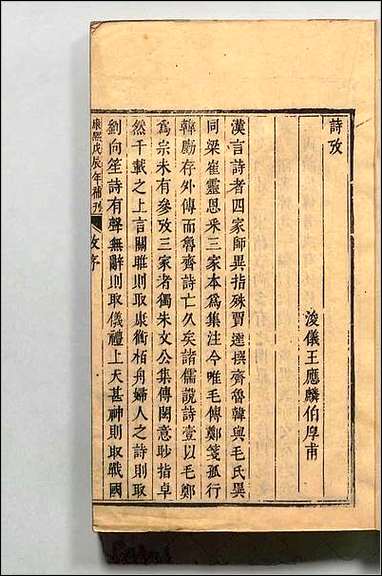 詩攷
浚儀王應麟伯厚甫
漢言詩者四家師異指殊賈逵撰齊魯韓與毛氏異
同梁崔靈恩采三家本爲集注今唯毛傳鄭箋孤行
韓厪存外傳而魯齊詩亡久矣諸儒說詩壹以毛鄭
爲宗未有參攷三家者獨朱文公集傳閎意眇指卓
然千載之上言關雎則取康衡柏舟婦人之詩則取
劉向笙詩有聲無辭則取儀禮上天甚神則取戰國
康熙戊辰年補刊
攷序